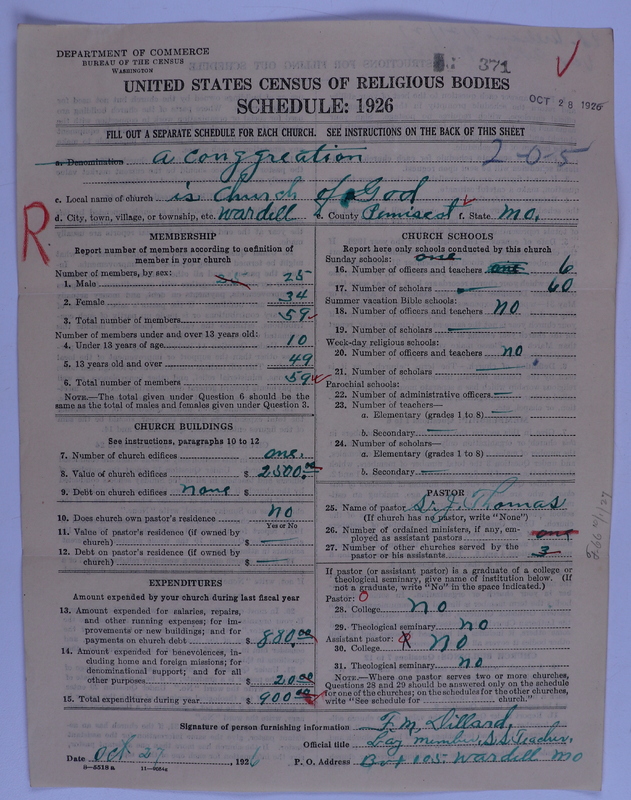 DEPARTMENT OF COMMERCE
BUREAU OF THE CENSUS
WASHINGTON
371
UNITED STATES CENSUS OF RELIGIOUS BODIES
SCHEDULE: 1926
OCT 28 1926
FILL OUT A SEPARATE SCHEDULE FOR EACH CHURCH. SEE INSTRUCTIONS ON THE BACK OF THIS SHEET
a. Denomination a conggreation 2-0-5
c. Local name of church is Church of God
d. City, town, village, or township, etc. Wardell e. County Pemiscot f. State Mo.
R
MEMBERSHIP
Report number of members according to definition of member in your church
Number of members, by sex:
1. Male 25
2. Female 34
3. Total number of members 59
Number of members under and over 13 years old:
4. Under 13 years of age 10
5. 13 years old and over 49
6. Total number of members 59
NOTE.—The total given under Question 6 should be
same as the total of males and females given under Question 3.
CHURCH BUILDINGS
See instructions, paragraphs 10 to 12
7. Number of church edifices one.
8. Value of church edifices $ 2500.00
9. Debt on church edifices none $
10. Does church own pastor's residence no
Yes or No
11. Value of pastor's residence (if owned by
church) $
12. Debt on pastor's residence (if owned by
church) $
EXPENDITURES
Amount expended by your church during last fiscal year
13. Amount expended for salaries, repairs,
and other running expenses; for im-
provements or new buildings; and for
payments on church debt $ 880.00
14. Amount expended for benevolences, in-
cluding home and foreign missions; for
denominational support; and for all
other purposes $ 20.00
15. Total expenditures during year $ 900.00
CHURCH SCHOOLS
Report here only schools conducted by this church
Sunday schools: one
16. Number of officers and teachers one 6
17. Number of scholars 60
Summer vacation Bible schools:
18. Number of officers and teachers no
19. Number of scholars
Week-day religious schools:
20. Number of officers and teachers no
21. Number of scholars
Parochial schools:
22. Number of administrative officers
23. Number of teachers—
a. Elementary (grades 1 to 8)
b. Secondary
24. Number of scholars—
a. Elementary (grades 1 to 8)
b. Secondary
PASTOR
25. Name of pastor J. Thomas
(If church has no pastor, write "None")
26. Number of ordained ministers, if any, em-
ployed as assistant pastors one
27. Number of other churches served by the
pastor or his assistants 3
If pastor (or assistant pastor) is a graduate of a college or
theological seminary, give name of institution below. (If
not a graduate, write "No" in the space indicated.)
Pastor: 0
28. College no
29. Theological seminary no
Assistant pastor:
30. College No
31. Theological seminary no
NOTE.—Where one pastor serves two or more churches,
Questions 28 and 29 should be answered only on the schedule
for one of the churches; on the schedules for the other churches,
write "See schedule for church."
Signature of person furnishing information F. M. Dillard.
Official title Lay member, S.S. Teacher,
Date Oct 27, 1926 P. O. Address Box 105. Wardell Mo
8—5518a 11—9084g